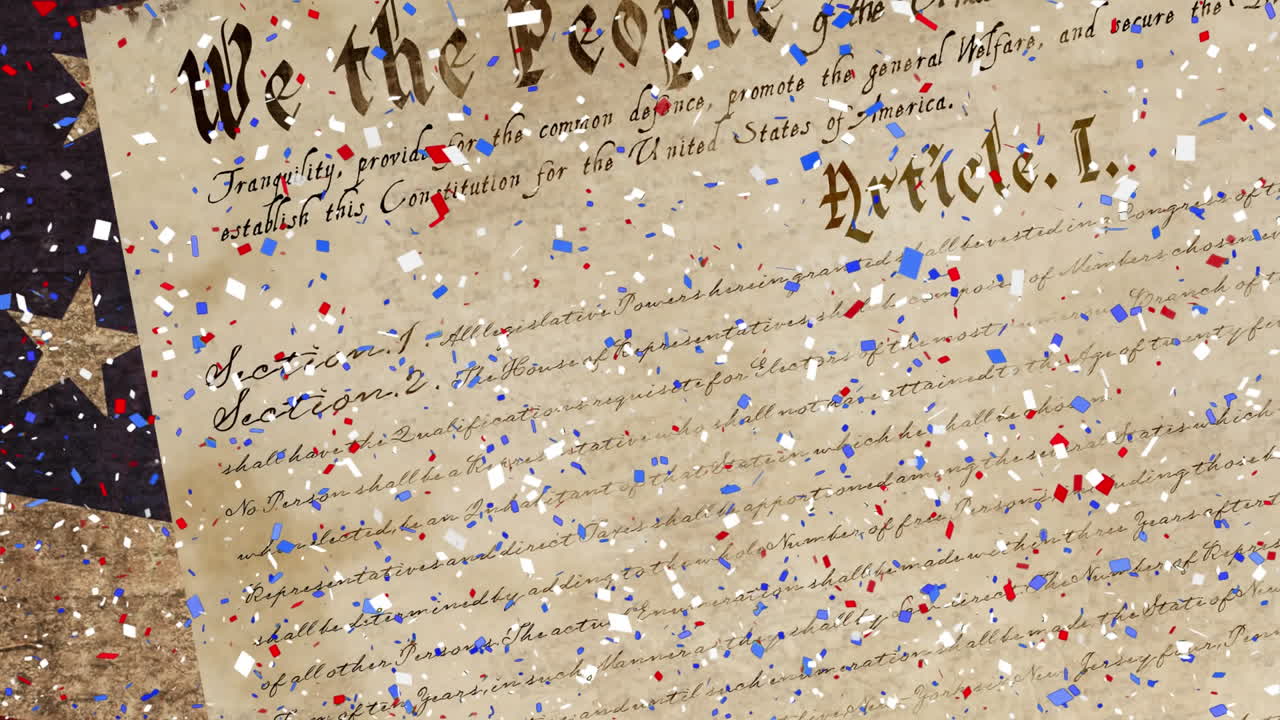 We the People of the
Tranquility, provide for the common defence, promote the general Welfare, and secure the
establish this Constitution for the United States of America.
Article. I.
Section. 1. All legislative Powers herein granted shall be vested in a Congress of
Section. 2. The House of Representatives shall be composed of Members chosen
shall have the Qualifications requisite for Electors of the most numerous Branch of
No Person shall be a Representative who shall not have attained to the Age of twenty
when elected, be an Inhabitant of that State in which he shall be chosen
Representatives and direct Taxes shall be apportioned among the several States which
shall be determined by adding to the whole Number of free Persons, including those
of all other Persons. The actual Enumeration shall be made within three Years after
Term of ten Years, in such Manner as they shall by Law direct. The Number of
and until such enumeration shall be made, the State of New
New-York six, New Jersey four,